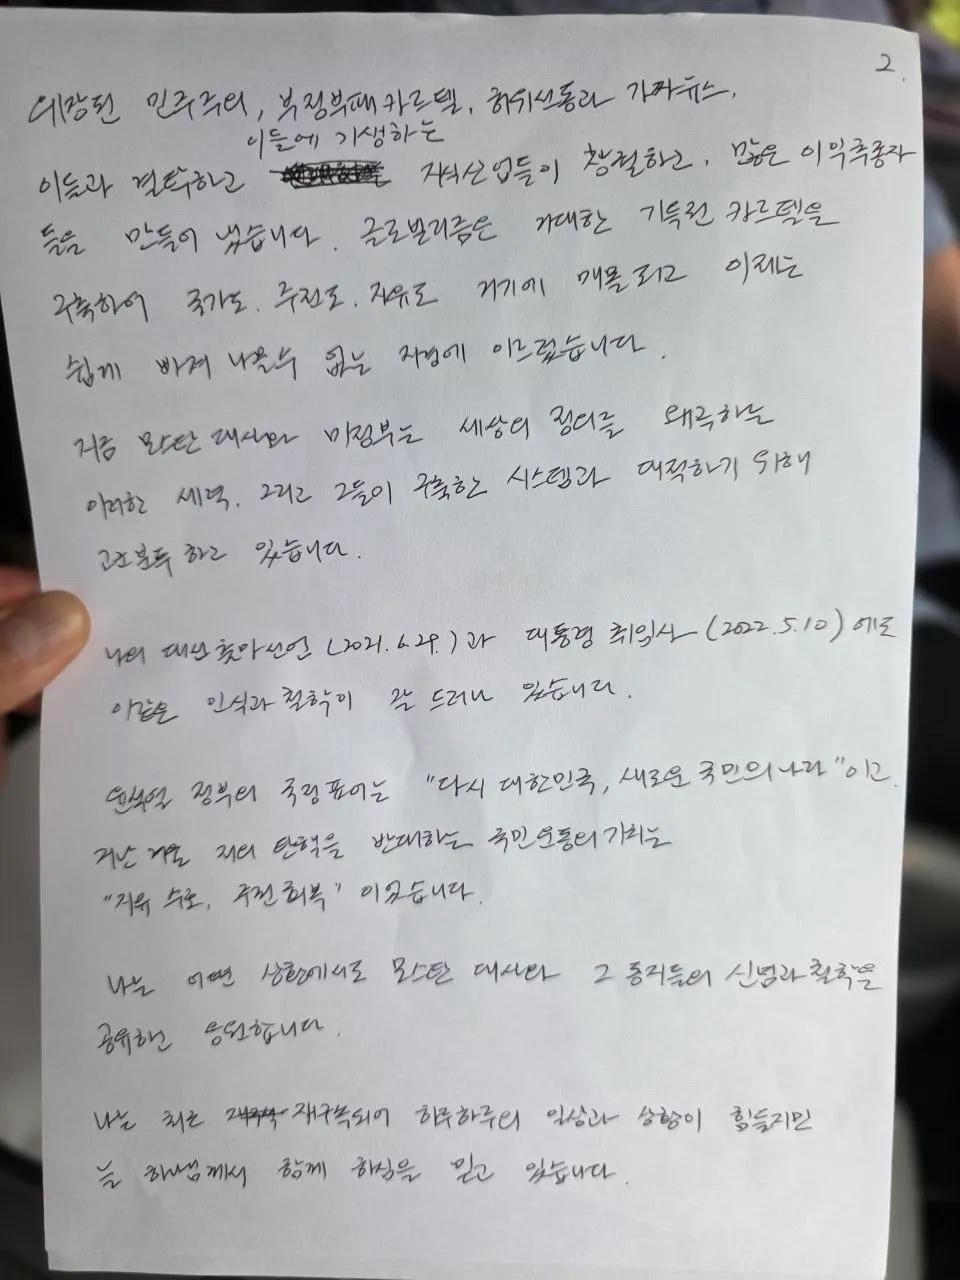 2.
위장된 민주주의, 부정부패 카르텔, 허위선동과 가짜뉴스,
이들에 기생하는
이들과 결탁하고 지식산업들이 창궐하고, 많은 이익추종자
들을 만들어 냈습니다. 글로벌리즘은 거대한 기득권 카르텔을
구축하여 국가도, 주권도, 자유도 거기에 매몰되고 이제는
쉽게 빠져 나올 수 없는 지경에 이르렀습니다.
지금 모스탄 대사와 미정부는 세상의 정의를 왜곡하는
이러한 세력, 그리고 그들이 구축한 시스템과 대적하기 위해
고군분투 하고 있습니다.
나의 대선 출마선언 (2021. 6. 29.) 과 대통령 취임사 (2022. 5. 10) 에도
이같은 인식과 철학이 잘 드러나 있습니다.
윤석열 정부의 국정 표어는 "다시 대한민국, 새로운 국민의 나라" 이고
지난 겨울 저의 탄핵을 반대하는 국민운동의 기치는
"자유 수호, 주권 회복" 이었습니다.
나는 어떤 상황에서도 모스탄 대사와 그 동지들의 신념과 철학을
공유하고 응원합니다.
나는 최근 재구속되어 하루하루의 일상과 상황이 힘들지만
늘 하나님께서 함께 하심을 믿고 있습니다.